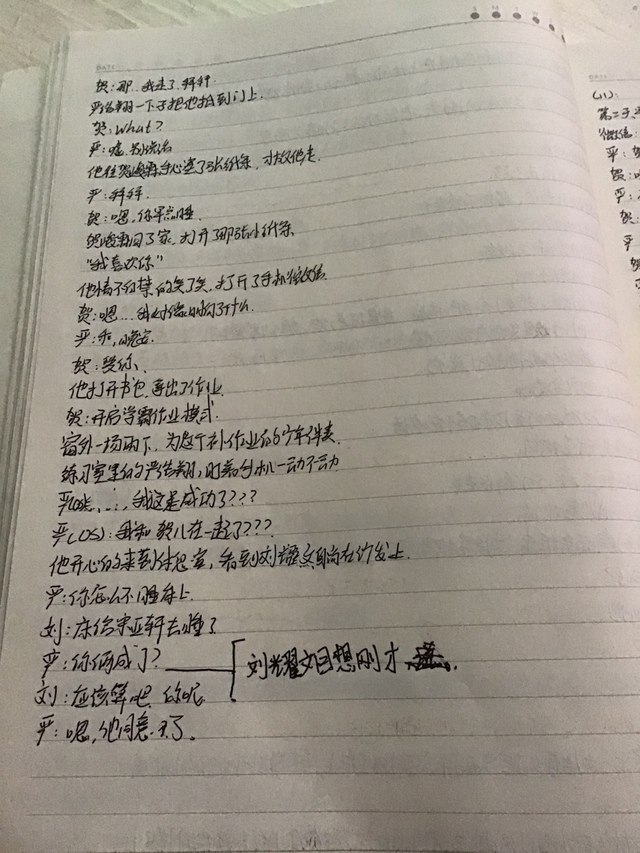 贺:那,我走了,拜拜.
严浩翔一下子把他拉到门上.
贺:What?
严:嘘,别说话
他往贺峻霖手心塞了张纸条,才放他走.
严:拜拜.
贺:嗯,你早点睡.
贺峻霖回了家,打开了那张小纸条
"我喜欢你"
他情不自禁的笑了笑,打开了手机微信
贺:嗯...
严:乖,晚安
贺:爱你.
他打开书包,拿出了作业.
贺:开启学霸作业模式.
窗外一场雨下,为这个补作业的少年伴奏.
练习室里的严浩翔,盯着手机一动不动
严(OS):我这是成功了???
严(OS):我和贺儿在一起了???
他开心的来到休息室,看到刘耀文躺在沙发上.
严:你怎么不睡床上.
刘:床给宋亚轩去睡了
严:你俩成了? 刘耀文回想刚才
刘:应该算吧,你呢
严:嗯,他同意了.
(11):
第二天
微信:
严:
贺:
严:
贺:
严
贺